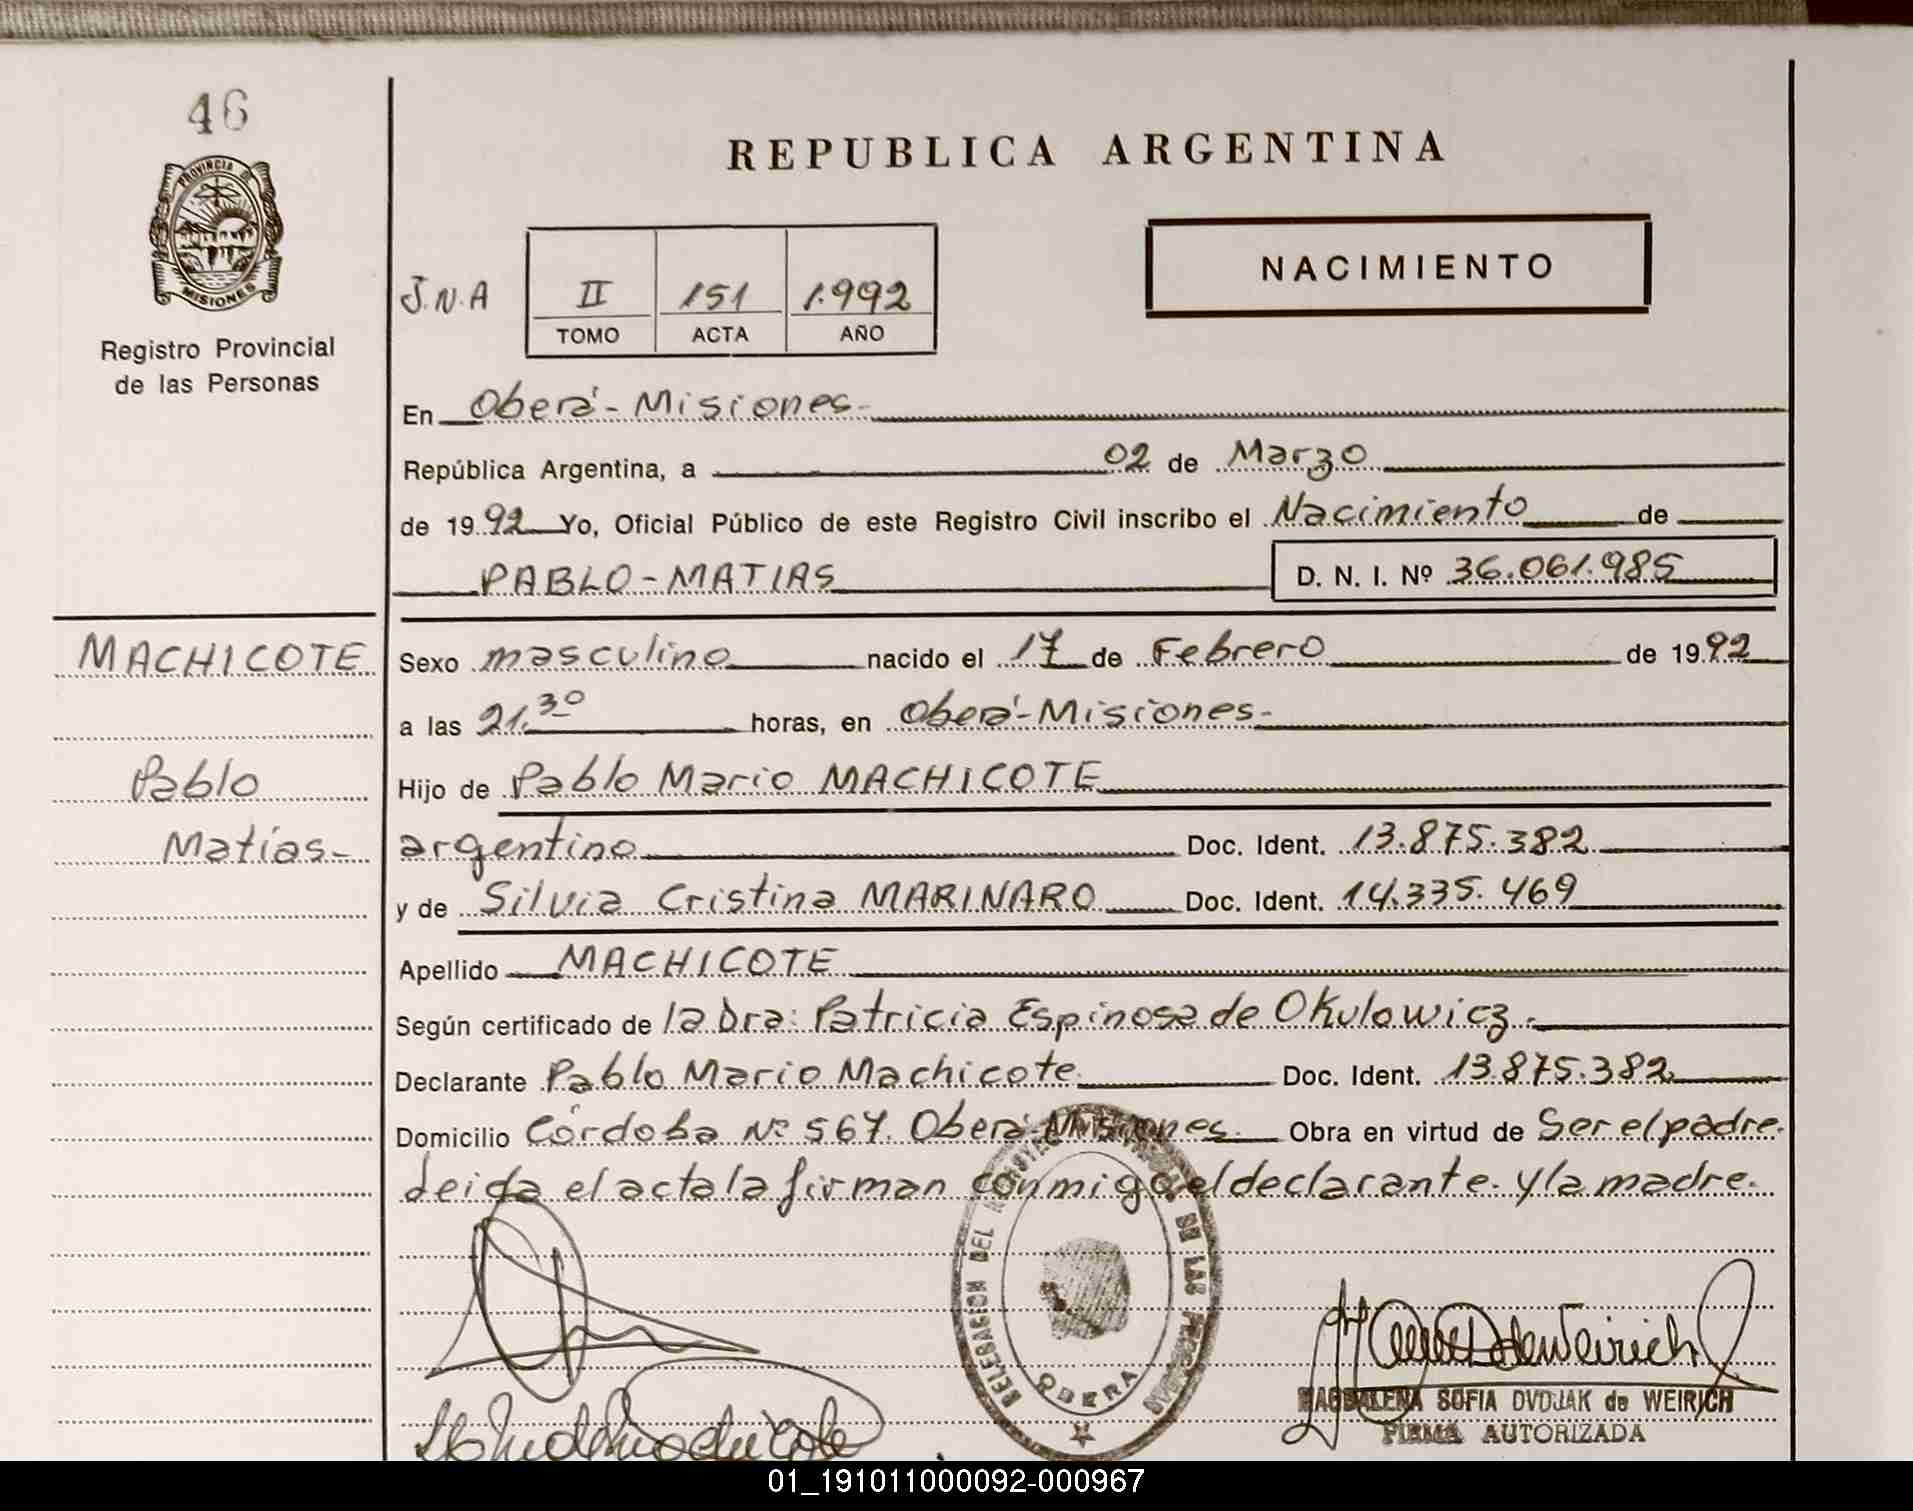 46
PROVINCIA DE
MISIONES
Registro Provincial
de las Personas
REPUBLICA ARGENTINA
NACIMIENTO
J.N.A
II 151 1.992
TOMO ACTA AÑO
En Oberá-Misiones-
República Argentina, a 02 de Marzo
de 1992 Yo, Oficial Público de este Registro Civil inscribo el Nacimiento de
PABLO-MATIAS D. N. I. Nº 36.061.985
MACHICOTE
Pablo
Matías-
Sexo masculino nacido el 17 de Febrero de 1992
a las 21.30 horas, en Oberá-Misiones-
Hijo de Pablo Mario MACHICOTE
argentino Doc. Ident. 13.875.382
y de Silvia Cristina MARINARO Doc. Ident. 14.335.469
Apellido MACHICOTE
Según certificado de la Dra: Patricia Espinosa de Okulowicz.
Declarante Pablo Mario Machicote Doc. Ident. 13.875.382
Domicilio Córdoba Nº 567. Oberá-Misiones. Obra en virtud de Ser el padre.
Leida el acta la firman conmigo el declarante y la madre.
DELEGACION DEL REGISTRO DE LAS PERSONAS
OBERA
MAGDALENA SOFIA DVDJAK de WEIRICH
FIRMA AUTORIZADA
01_191011000092-000967